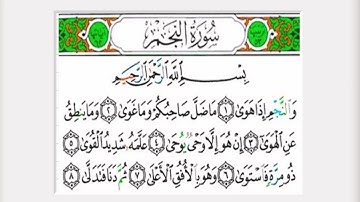 سُورَةُ النَّجْمِ
بِسْمِ اللَّهِ الرَّحْمَٰنِ الرَّحِيمِ
وَالنَّجْمِ إِذَا هَوَىٰ ١ مَا ضَلَّ صَاحِبُكُمْ وَمَا غَوَىٰ ٢ وَمَا يَنطِقُ
عَنِ الْهَوَىٰ ٣ إِنْ هُوَ إِلَّا وَحْيٌ يُوحَىٰ ٤ عَلَّمَهُ شَدِيدُ الْقُوَىٰ ٥
ذُو مِرَّةٍ فَاسْتَوَىٰ ٦ وَهُوَ بِالْأُفُقِ الْأَعْلَىٰ ٧ ثُمَّ دَنَا فَتَدَلَّىٰ ٨